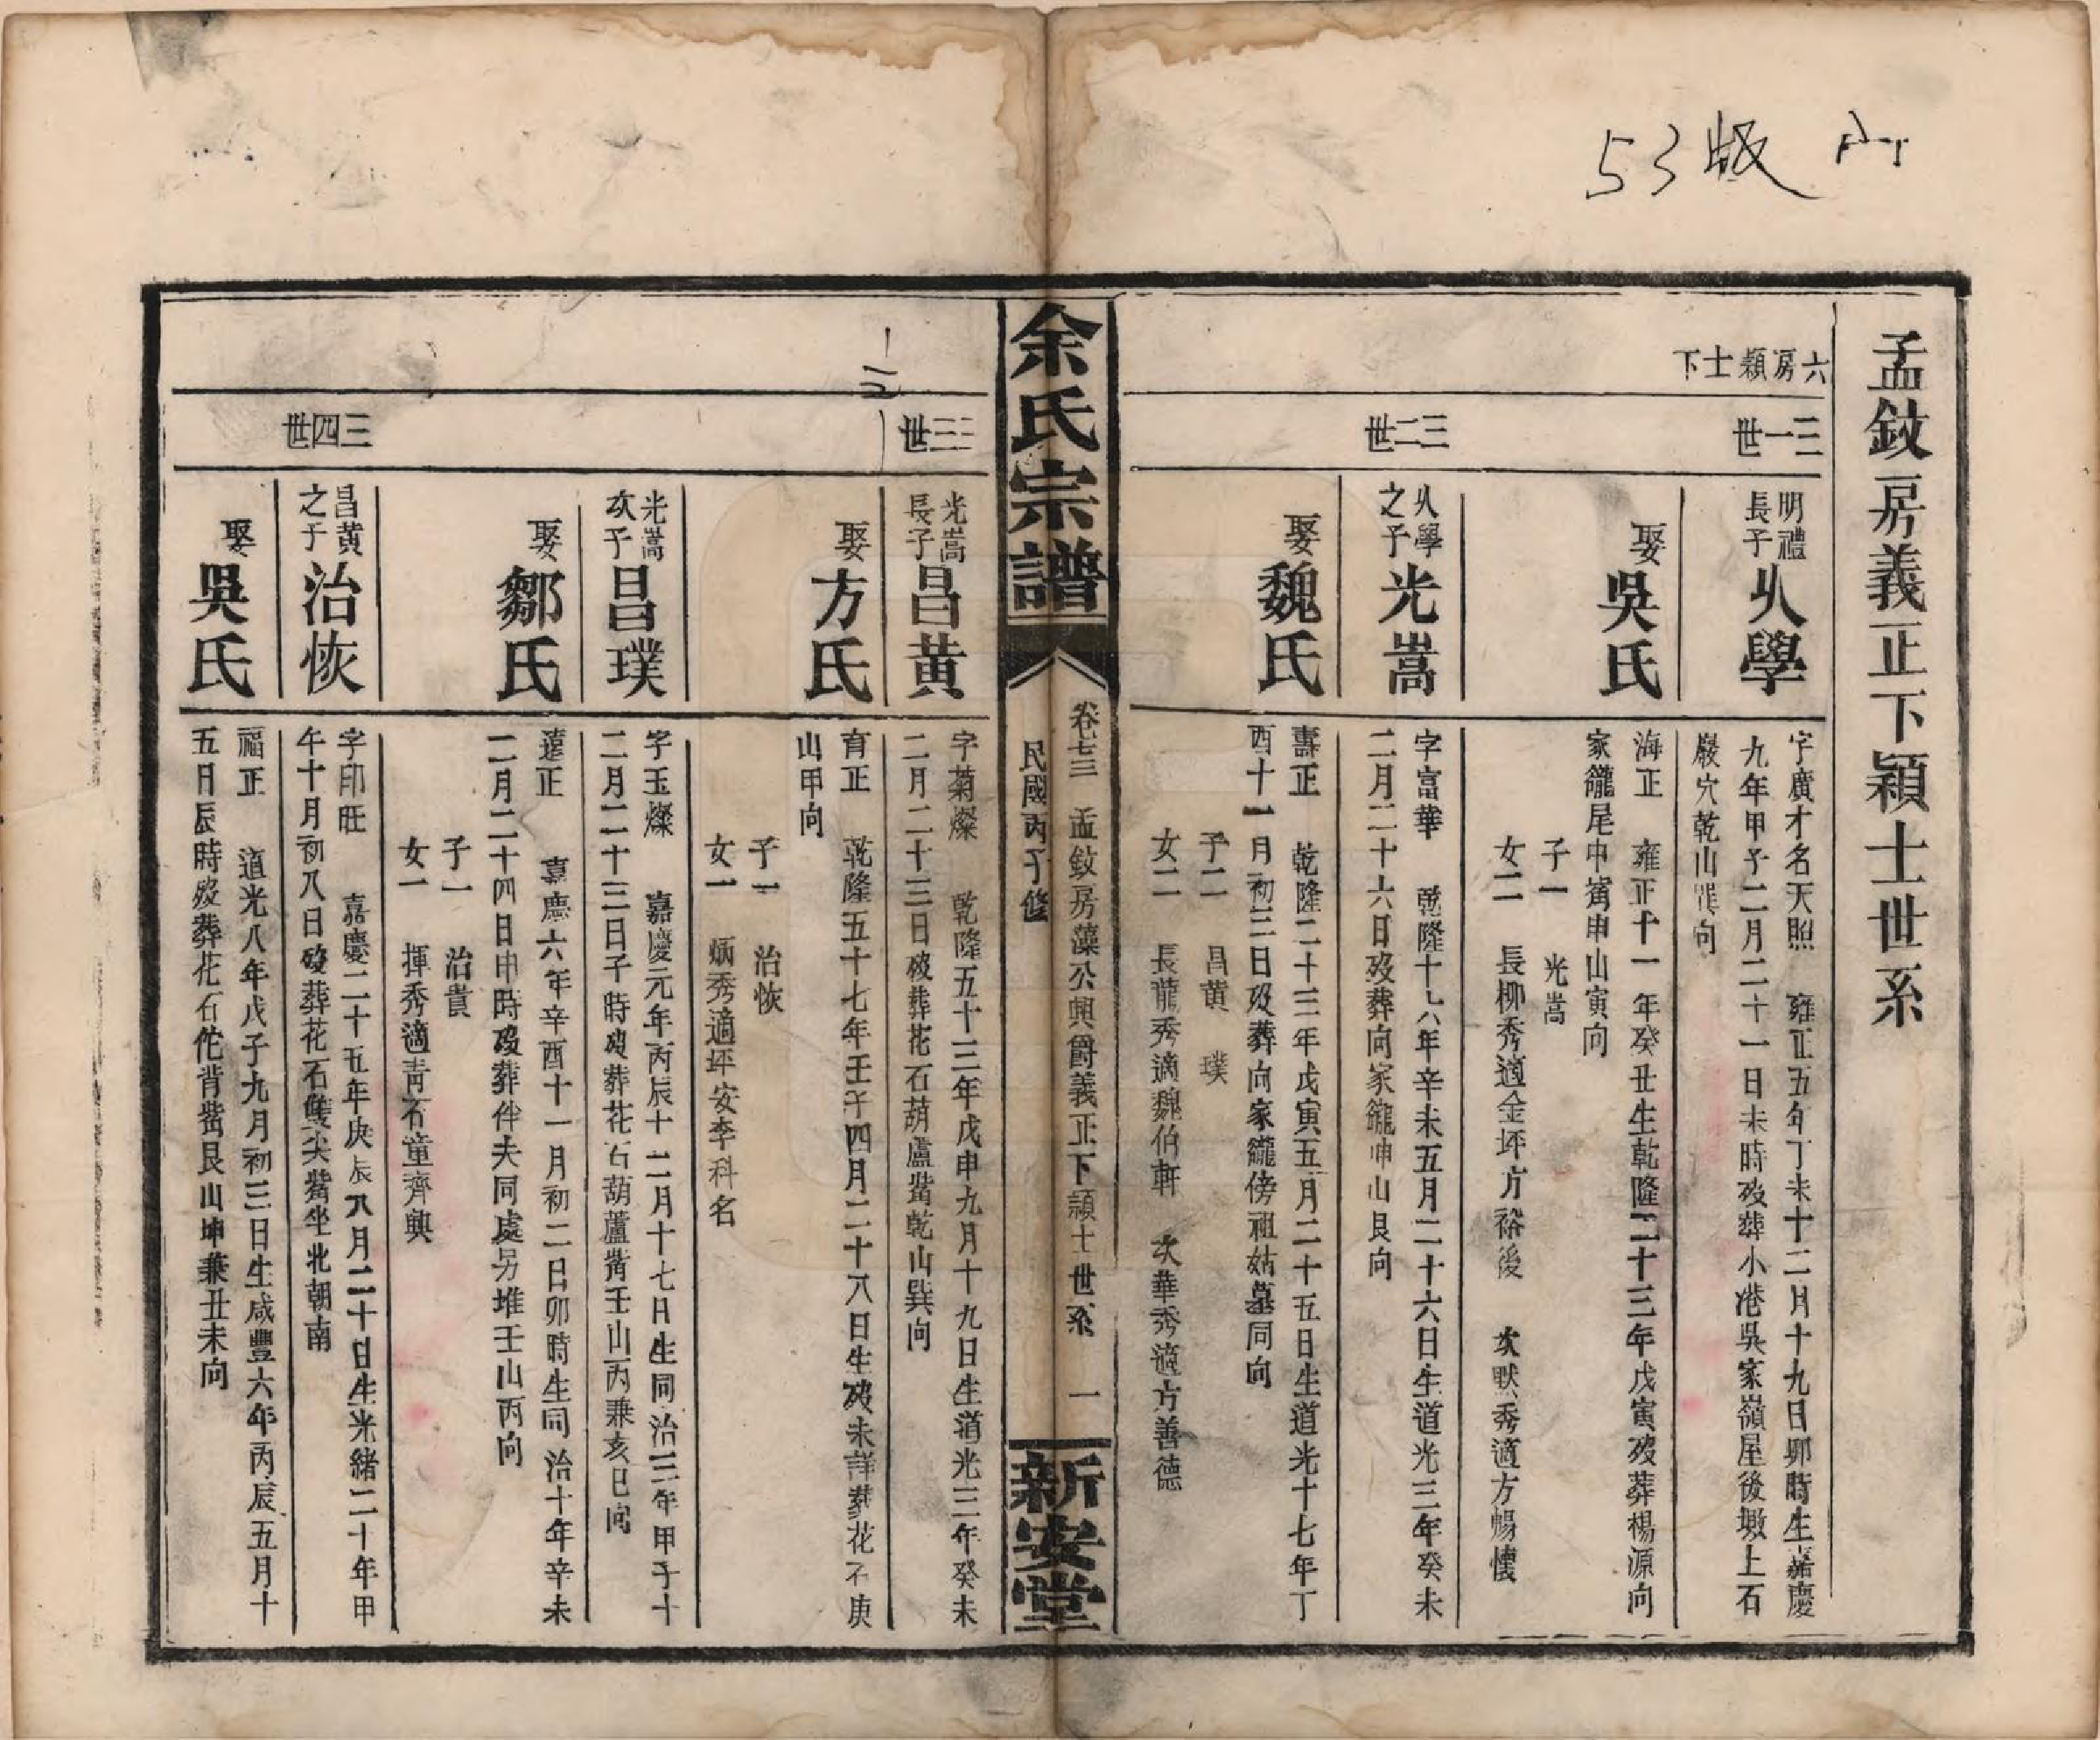 53版
孟鈘房義正下穎士世系
六房穎士下
三一世
明禮
長子
火學
字廣才名天照 雍正五年丁未十二月十九日卯時生嘉慶
九年甲子二月二十一日未時歿葬小港吳家嶺屋後墩上石
巖穴乾山巽向
娶
吳氏
海正 雍正十一年癸丑生乾隆二十三年戊寅歿葬楊源向
家籠尾中篱申山寅向
子一 光嵩
女二 長柳秀適金坪方裕後 次默秀適方暢懷
三二世
火學
之子
光嵩
字富華 乾隆十六年辛未五月二十六日生道光三年癸未
二月二十六日歿葬向家籠坤山艮向
娶
魏氏
壽正 乾隆二十三年戊寅五月二十五日生道光十七年丁
酉十一月初三日歿葬向家籠傍祖姑墓同向
子二 昌黄 璞
女二 長龍秀適魏伯軒 次華秀適方善德
余氏宗譜
卷七三 孟鈘房藻公興爵義正下穎士世系 一
民國丙子修
新安堂
三三世
光嵩
長子
昌黄
字菊燦 乾隆五十三年戊申九月十九日生道光三年癸未
二月二十三日歿葬花石葫蘆嘴乾山巽向
娶
方氏
育正 乾隆五十七年壬子四月二十八日生歿未詳葬花石庚
山甲向
子一 治恢
女一 炳秀適坪安李科名
光嵩
次子
昌璞
字玉燦 嘉慶元年丙辰十二月十七日生同治三年甲子十
二月二十三日子時歿葬花石葫蘆嘴壬山丙兼亥巳向
娶
鄒氏
遠正 嘉慶六年辛酉十一月初二日卯時生同治十年辛未
二月二十四日申時歿葬伴夫同處另堆壬山丙向
子一 治貴
女一 揮秀適青石童齊興
三四世
昌黄
之子
治恢
字印旺 嘉慶二十五年庚辰八月二十日生光緒二十年甲
午十月初八日歿葬花石雙尖嘴坐北朝南
娶
吳氏
福正 道光八年戊子九月初三日生咸豐六年丙辰五月十
五日辰時歿葬花石佗背嘴艮山坤兼丑未向